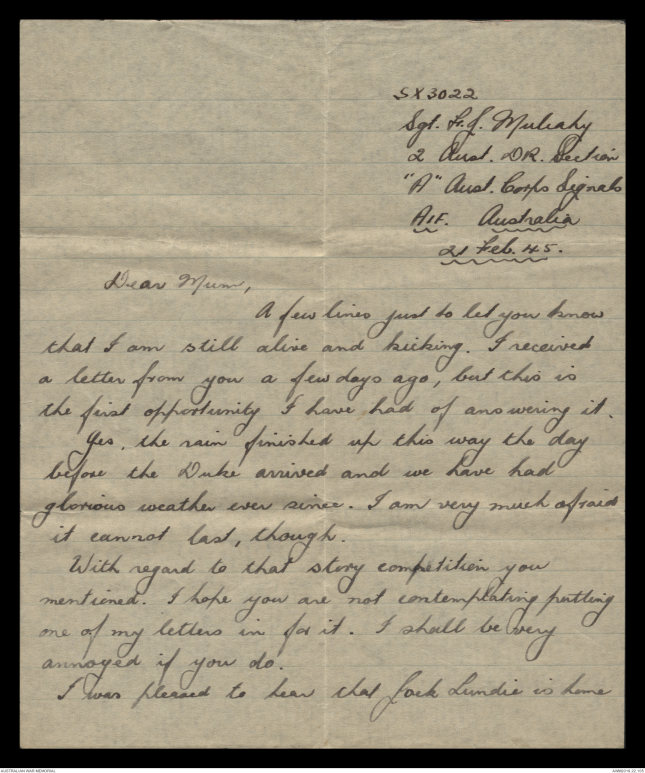 SX3022
Sgt. F. J. Mulcahy
2 Aust. DR. Section
"A" Aust. Corps Signals
AIF. Australia
21 Feb. 45.
Dear Mum,
A few lines just to let you know
that I am still alive and kicking. I received
a letter from you a few days ago, but this is
the first opportunity I have had of answering it.
Yes, the rain finished up this way the day
before the Duke arrived and we have had
glorious weather ever since. I am very much afraid
it cannot last, though.
With regard to that story competition you
mentioned. I hope you are not contemplating putting
one of my letters in for it. I shall be very
annoyed if you do.
I was pleased to hear that Jock Lundie is home
AUSTRALIAN WAR MEMORIAL